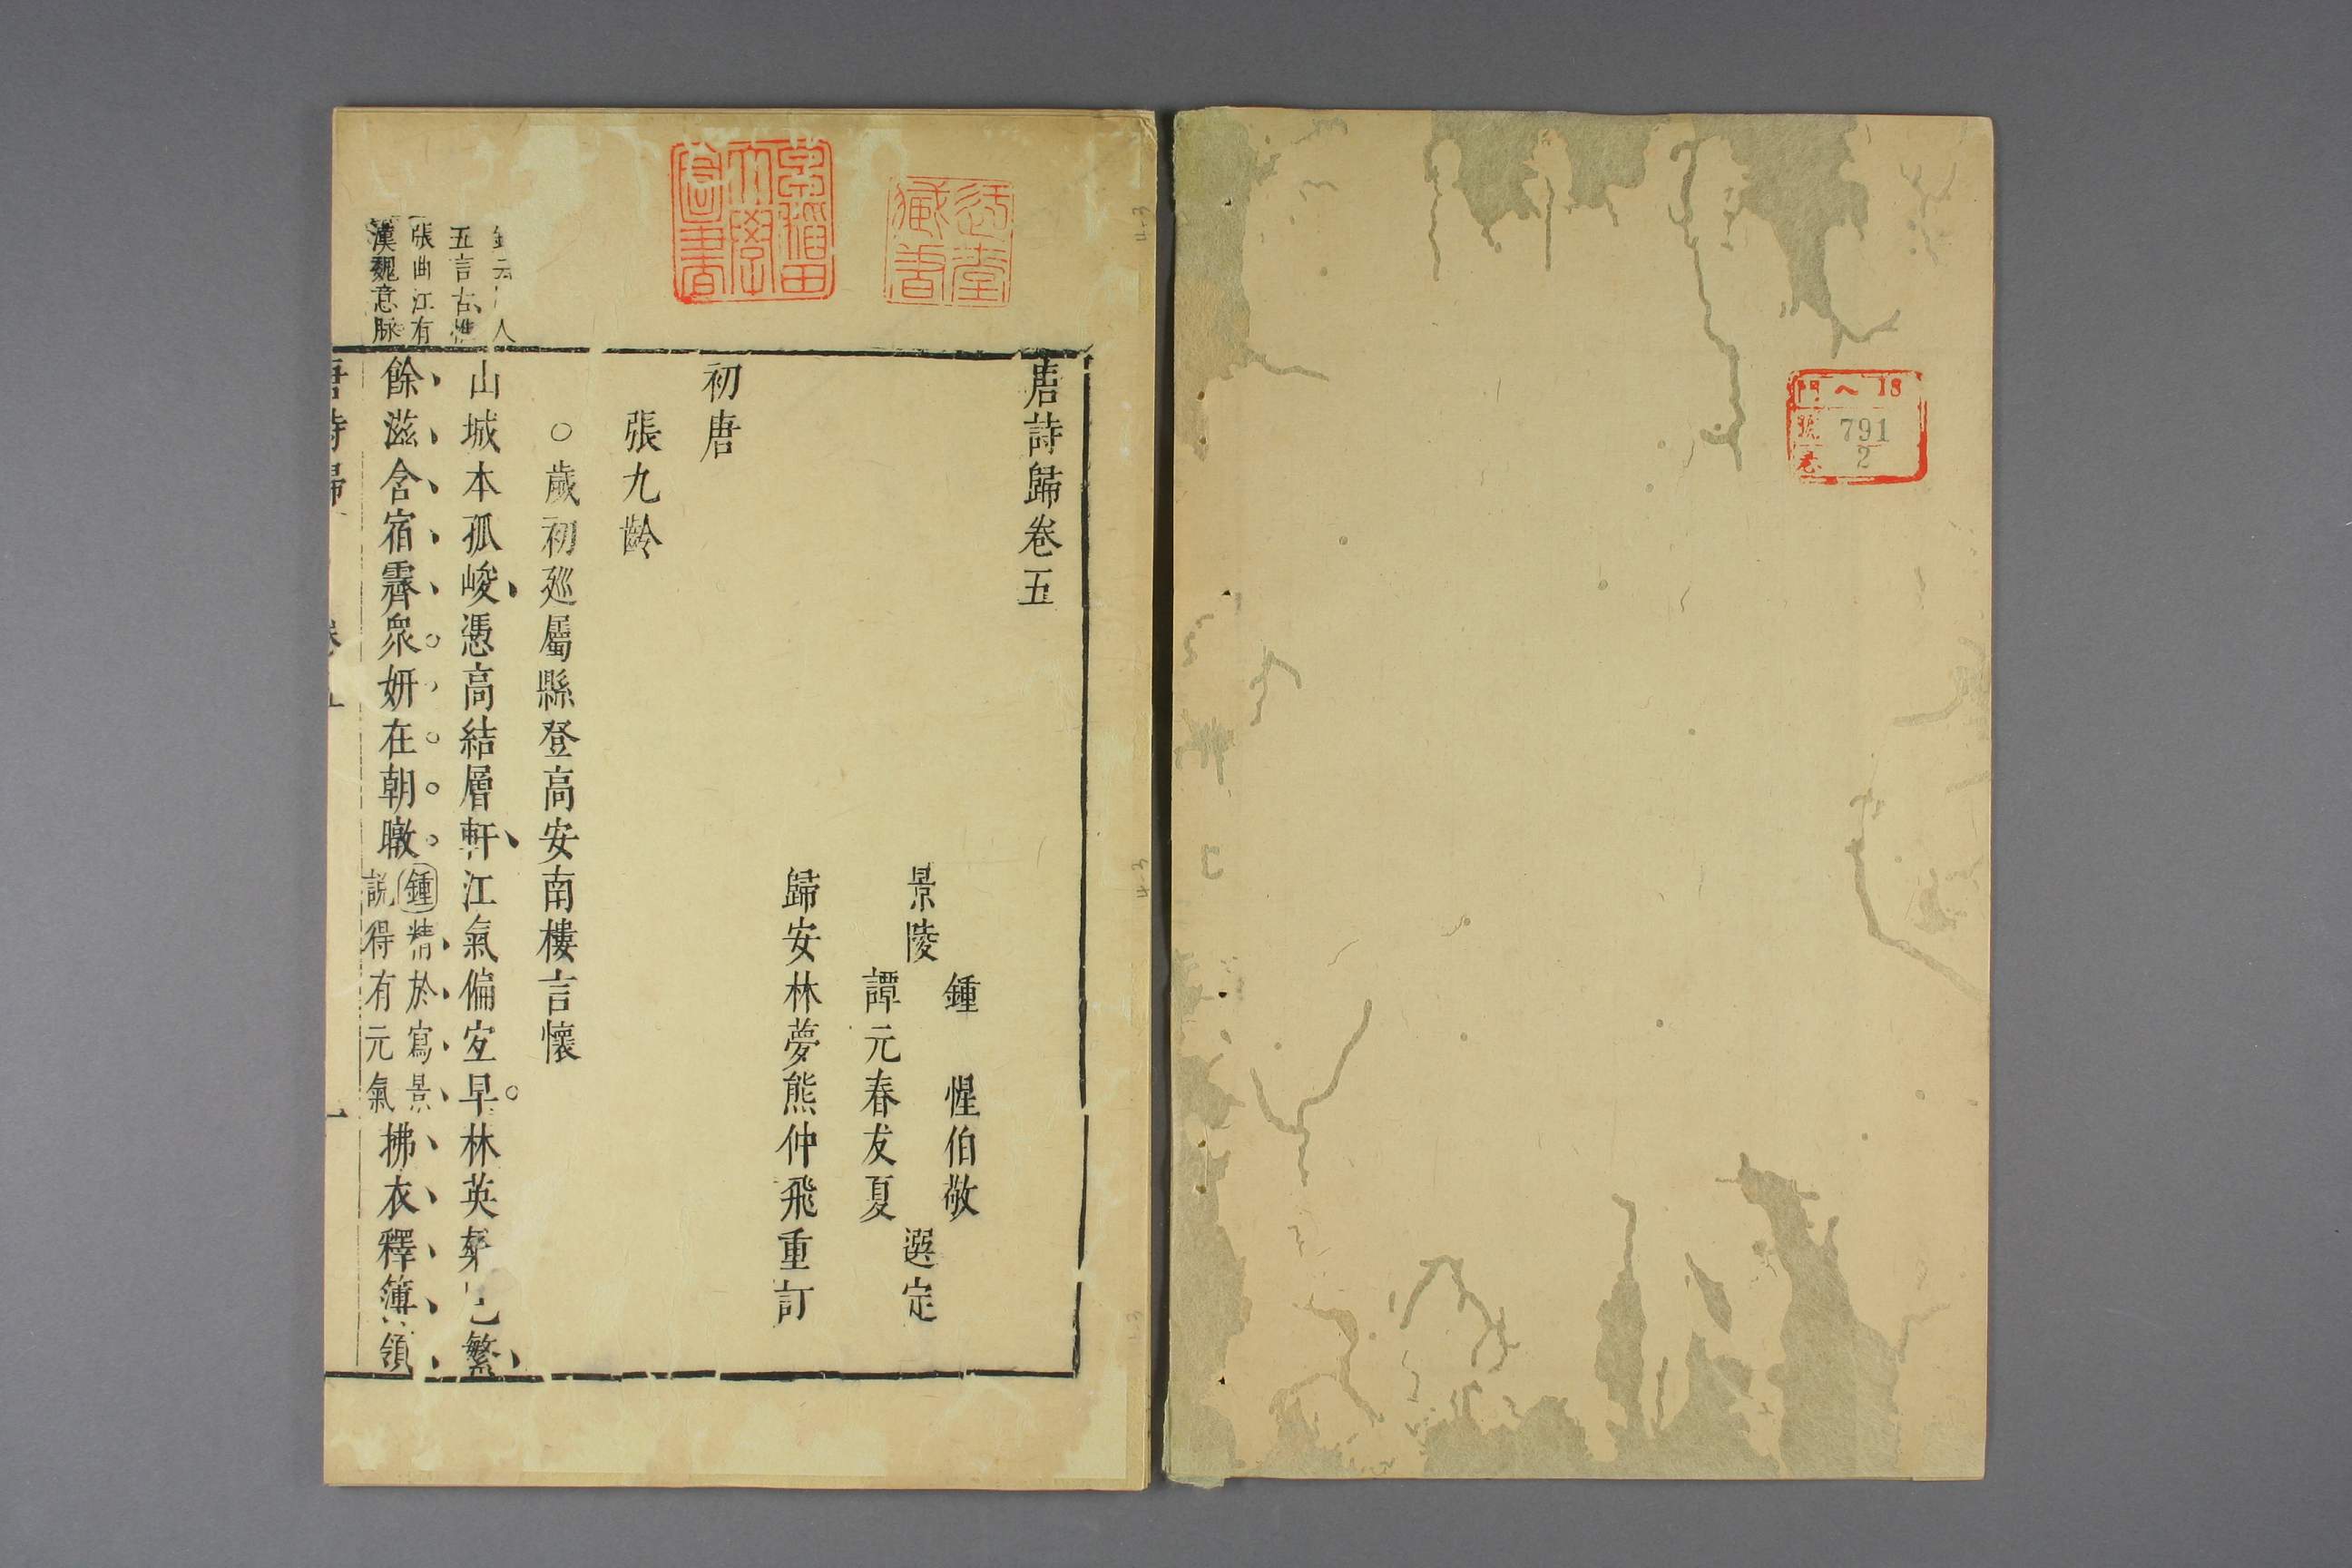 門 へ 18
號 791
卷 2
早稲田
大學
圖書
藏書
唐詩歸卷五
鍾 惺伯敬
景陵 選定
譚元春友夏
歸安林夢熊仲飛重訂
初唐
張九齡
○歲初廵屬縣登高安南樓言懷
山城本孤峻憑高結層軒江氣偏宜早林英粲已繁
餘滋含宿霽衆妍在朝暾
鍾精於寫景
說得有元氣
拂衣釋簿領
人
五言古惟
張曲江有
漢魏意脉
唐詩歸 卷五 一